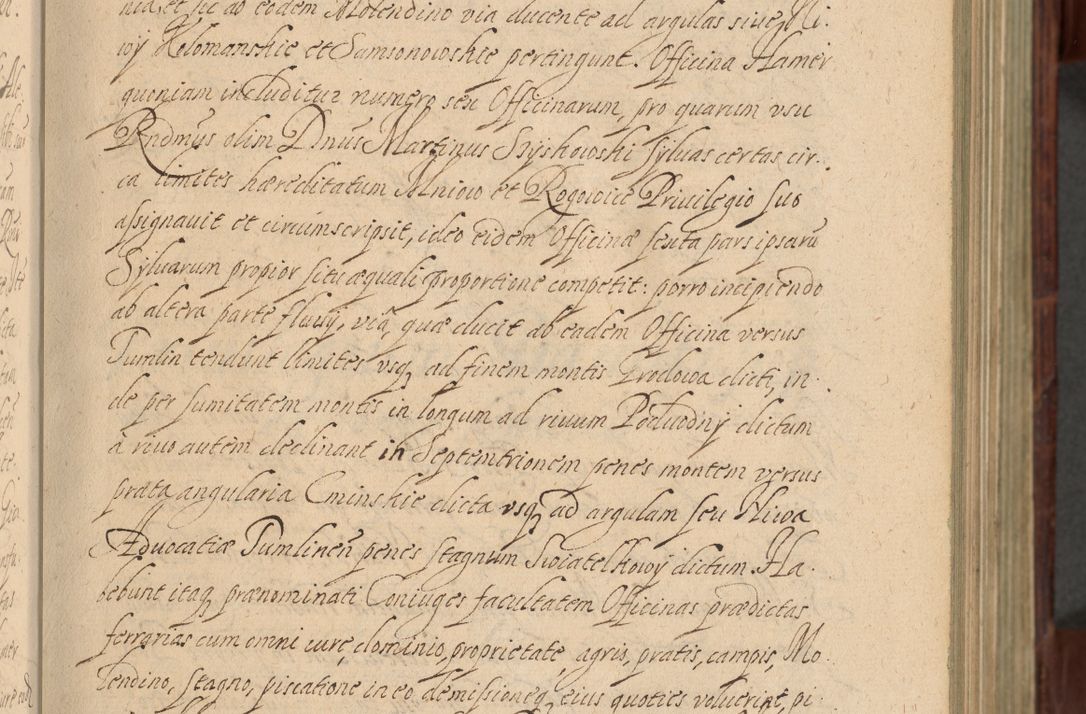 nia, et sic ab eodem Molendino via ducente ad argulas siue Ni-
wy Kelomanskie et Samsonowskie pertingunt. Officina Hamer
quoniam includitur numero seu Officinarum, pro quarum vsu
Rndmus olim Dnus Martinus Szyskowski syluas certas cir-
ca limites hæreditatum Mniow et Rogowice Priuilegio suo
assignauit et circumscripsit, ideo eidem Officinæ sexta pars ipsarū
Syluarum propior situ æquali proportione competit: porro incipiendo
ab altera parte fluuij, via, quæ ducit ab eadem Officina versus
Tumlin tendunt limites vsq ad finem montis Grodowa dicti, in-
de per sumitatem montis in longum ad riuum Podwodny dictum
à riuo autem declinant in Septemtrionem penes montem versus
prata angularia Cminskie dicta vsq ad argulam seu Niwa
Aduocatiæ Tumlinen penes stagnum Swiatelkowy dictum. Ha-
bebunt itaq prænominati Coniuges facultatem Officinas prædictas
ferrarias cum omni iure dominio, proprietate, agris, pratis, campis, Mo-
lendino, stagno, piscatione in eo demissioneq eius quoties voluerint, pi-